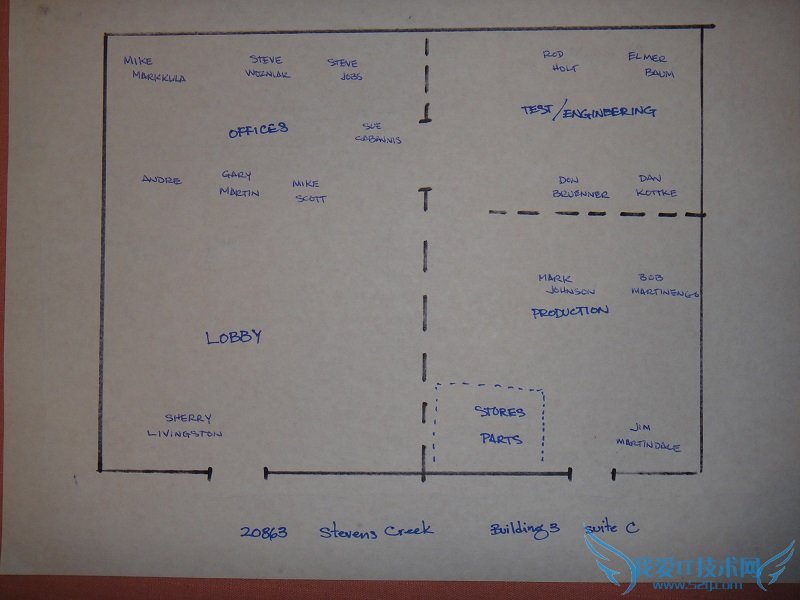 MIKE
MARKKULA
STEVE
WOZNIAK
STEVE
JOBS
ROD
HOLT
ELMER
BAUM
OFFICES
SUE
CABANNIS
TEST/ENGINEERING
ANDRE
GARY
MARTIN
MIKE
SCOTT
DON
BRUENNER
DAN
KOTTKE
MARK
JOHNSON
BOB
MARTINENGO
PRODUCTION
LOBBY
STORES
PARTS
SHERRY
LIVINGSTON
JIM
MARTINDALE
20863 Stevens Creek Building 3 suite C
我爱IT技术网
www.52ij.com